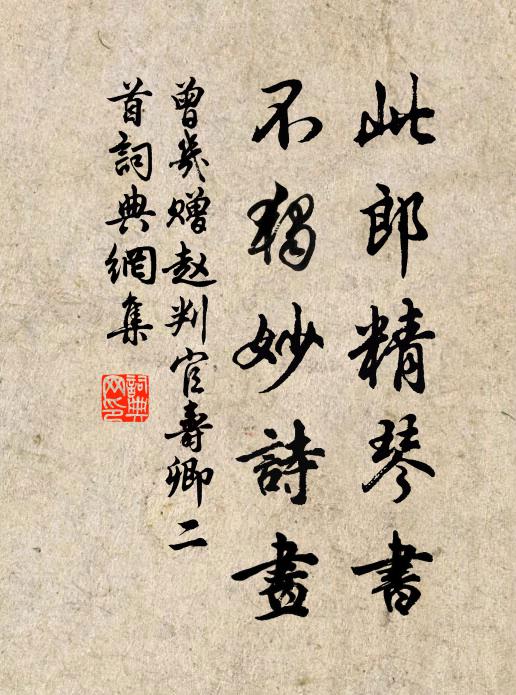 此郎精琴書
不獨妙詩畫
曾幾贈趙判官壽卿二
首詞典網集
詞典
网印